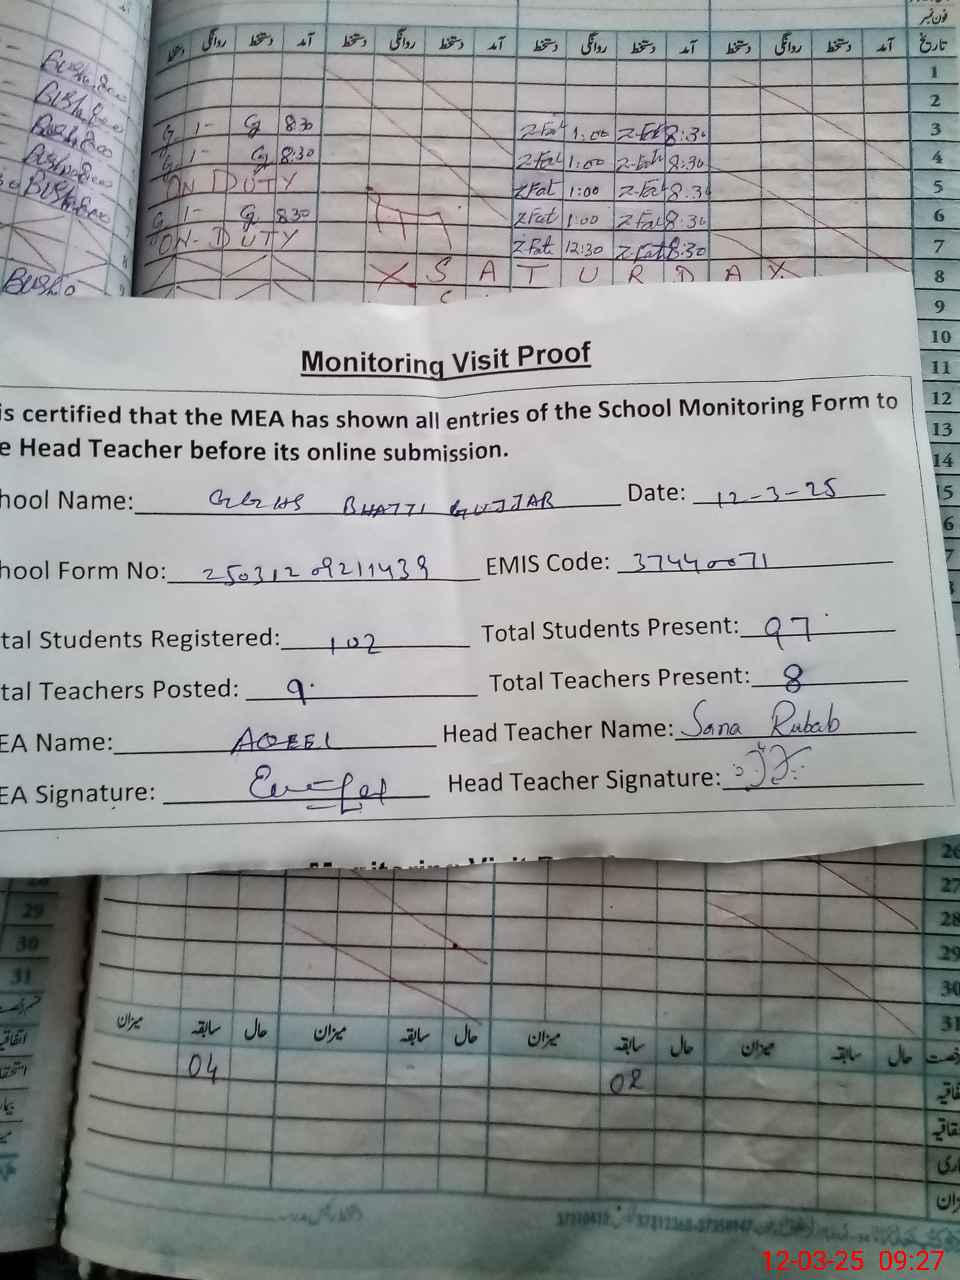 فون نمبر
دستخط روانگی دستخط آمد دستخط روانگی دستخط آمد دستخط روانگی دستخط آمد دستخط روانگی دستخط آمد تاریخ
1
2
1- 8:30 Z-Fat 1:00 Z-Fat 8:30 3
1- 8:30 Z-Fat 1:00 Z-Fat 8:30 4
ON DUTY Z-Fat 1:00 Z-Fat 8:3 5
1- 8:30 Z-Fat 1:00 Z-Fat 8:30 6
ON-DUTY Z-Fat 12:30 Z-Fat 8:30 7
SATURDAY 8
9
10
11
12
13
14
Monitoring Visit Proof
is certified that the MEA has shown all entries of the School Monitoring Form to
e Head Teacher before its online submission.
hool Name: GGHS BHATTI GUJJAR Date: 12-3-25
hool Form No: 25031209211439 EMIS Code: 37440071
tal Students Registered: 102 Total Students Present: 97
tal Teachers Posted: 9 Total Teachers Present: 8
EA Name: AQEEL Head Teacher Name: Sana Rubab
EA Signature: Head Teacher Signature:
26
27
29 28
30 29
31 30
31
میزان سابقہ حال میزان سابقہ حال میزان سابقہ حال میزان سابقہ حال
04 02
12-03-25 09:27